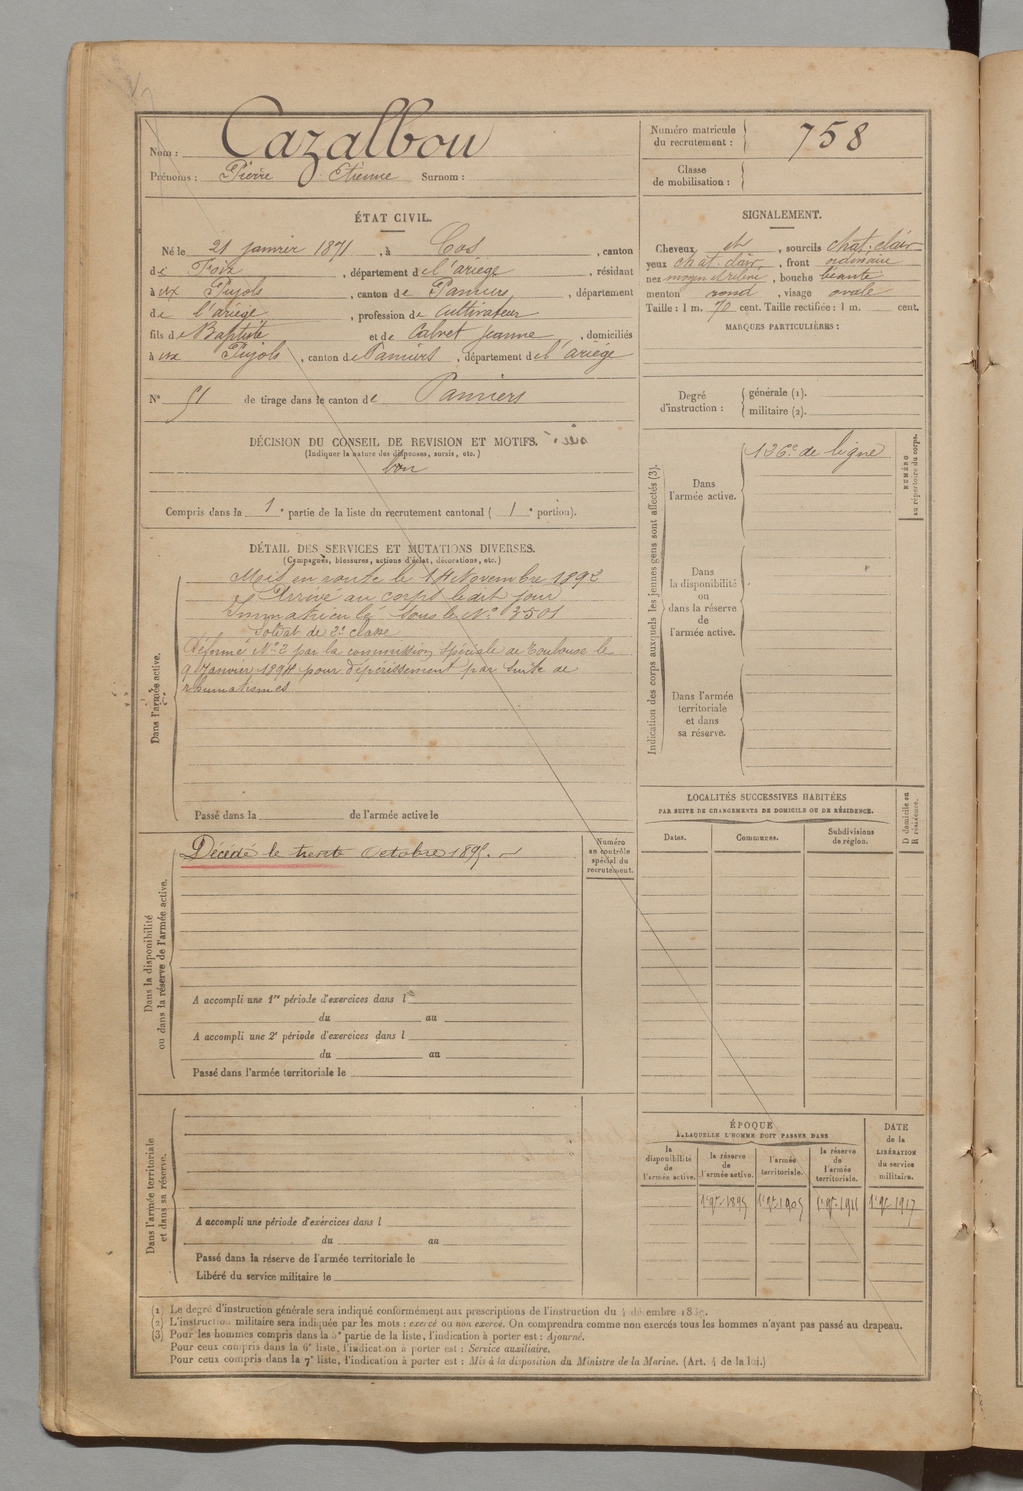 Nom : Cazalbou
Prénoms : Pierre Etienne Surnom :
Numéro matricule
du recrutement : 758
Classe
de mobilisation :
ÉTAT CIVIL.
Né le 21 janvier 1871, à Cos, canton
de Foix, département de l'ariège, résidant
à Pujols, canton de Pamiers, département
de l'ariège, profession de Cultivateur
fils de Baptiste et de Calvet Jeanne, domiciliés
à Pujols, canton de Pamiers, département de l'ariège
N° 51 de tirage dans le canton de Pamiers
SIGNALEMENT.
Cheveux et, sourcils chat. clair
yeux chat. clair, front ordinaire
nez moyen, bouche béante
menton rond, visage ovale
Taille : 1 m. 70 cent. Taille rectifiée : 1 m. cent.
MARQUES PARTICULIÈRES :
Degré
d'instruction :
générale (1).
militaire (2).
DÉCISION DU CONSEIL DE REVISION ET MOTIFS.
(Indiquer la nature des dispenses, sursis, etc.)
bon
Compris dans la 1e partie de la liste du recrutement cantonal ( 1e portion).
DÉTAIL DES SERVICES ET MUTATIONS DIVERSES.
(Campagnes, blessures, actions d'éclat, décorations, etc.)
Dans l'armée active.
Mis en route le 14 Novembre 1892
Arrivé au corps ledit jour
Immatriculé sous le N° 3501
Soldat de 2e classe
Réformé N° 2 par la commission spéciale de Toulouse le
9 Janvier 1894 pour dépérissement par suite de
rhumatismes
Passé dans la de l'armée active le
Indication des corps auxquels les jeunes gens sont affectés (3).
Dans
l'armée active.
126e de ligne
NUMÉRO
au répertoire du corps.
Dans
la disponibilité
ou
dans la réserve
de
l'armée active.
Dans l'armée
territoriale
et dans
sa réserve.
LOCALITÉS SUCCESSIVES HABITÉES
PAR SUITE DE CHANGEMENTS DE DOMICILE OU DE RÉSIDENCE.
Dates. Communes. Subdivisions
de région.
D domicile ou
R résidence.
Dans la disponibilité
ou dans la réserve de l'armée active.
Décédé le trente Octobre 1895.
Numéro
au contrôle
spécial du
recrutement.
A accompli une 1re période d'exercices dans l
du au
A accompli une 2e période d'exercices dans l
du au
Passé dans l'armée territoriale le
Dans l'armée territoriale
et dans sa réserve.
A accompli une période d'exercices dans l
du au
Passé dans la réserve de l'armée territoriale le
Libéré du service militaire le
ÉPOQUE
A LAQUELLE L'HOMME DOIT PASSER DANS
la
disponibilité
de
l'armée active.
la réserve
de
l'armée active.
l'armée
territoriale.
la réserve
de
l'armée
territoriale.
DATE
de la
LIBÉRATION
du service
militaire.
1er 9bre 1895 1er 9bre 1905 1er 9bre 1911 1er 9bre 1917
(1) Le degré d'instruction générale sera indiqué conformément aux prescriptions de l'instruction du 4 décembre
(2) L'instruction militaire sera indiquée par les mots : exercé ou non exercé. On comprendra comme non exercés tous les hommes n'ayant pas passé au drapeau.
(3) Pour les hommes compris dans la 5e partie de la liste, l'indication à porter est : Ajourné.
Pour ceux compris dans la 6e liste, l'indication à porter est : Service auxiliaire.
Pour ceux compris dans la 7e liste, l'indication à porter est : Mis à la disposition du Ministre de la Marine. (Art. 4 de la loi.)